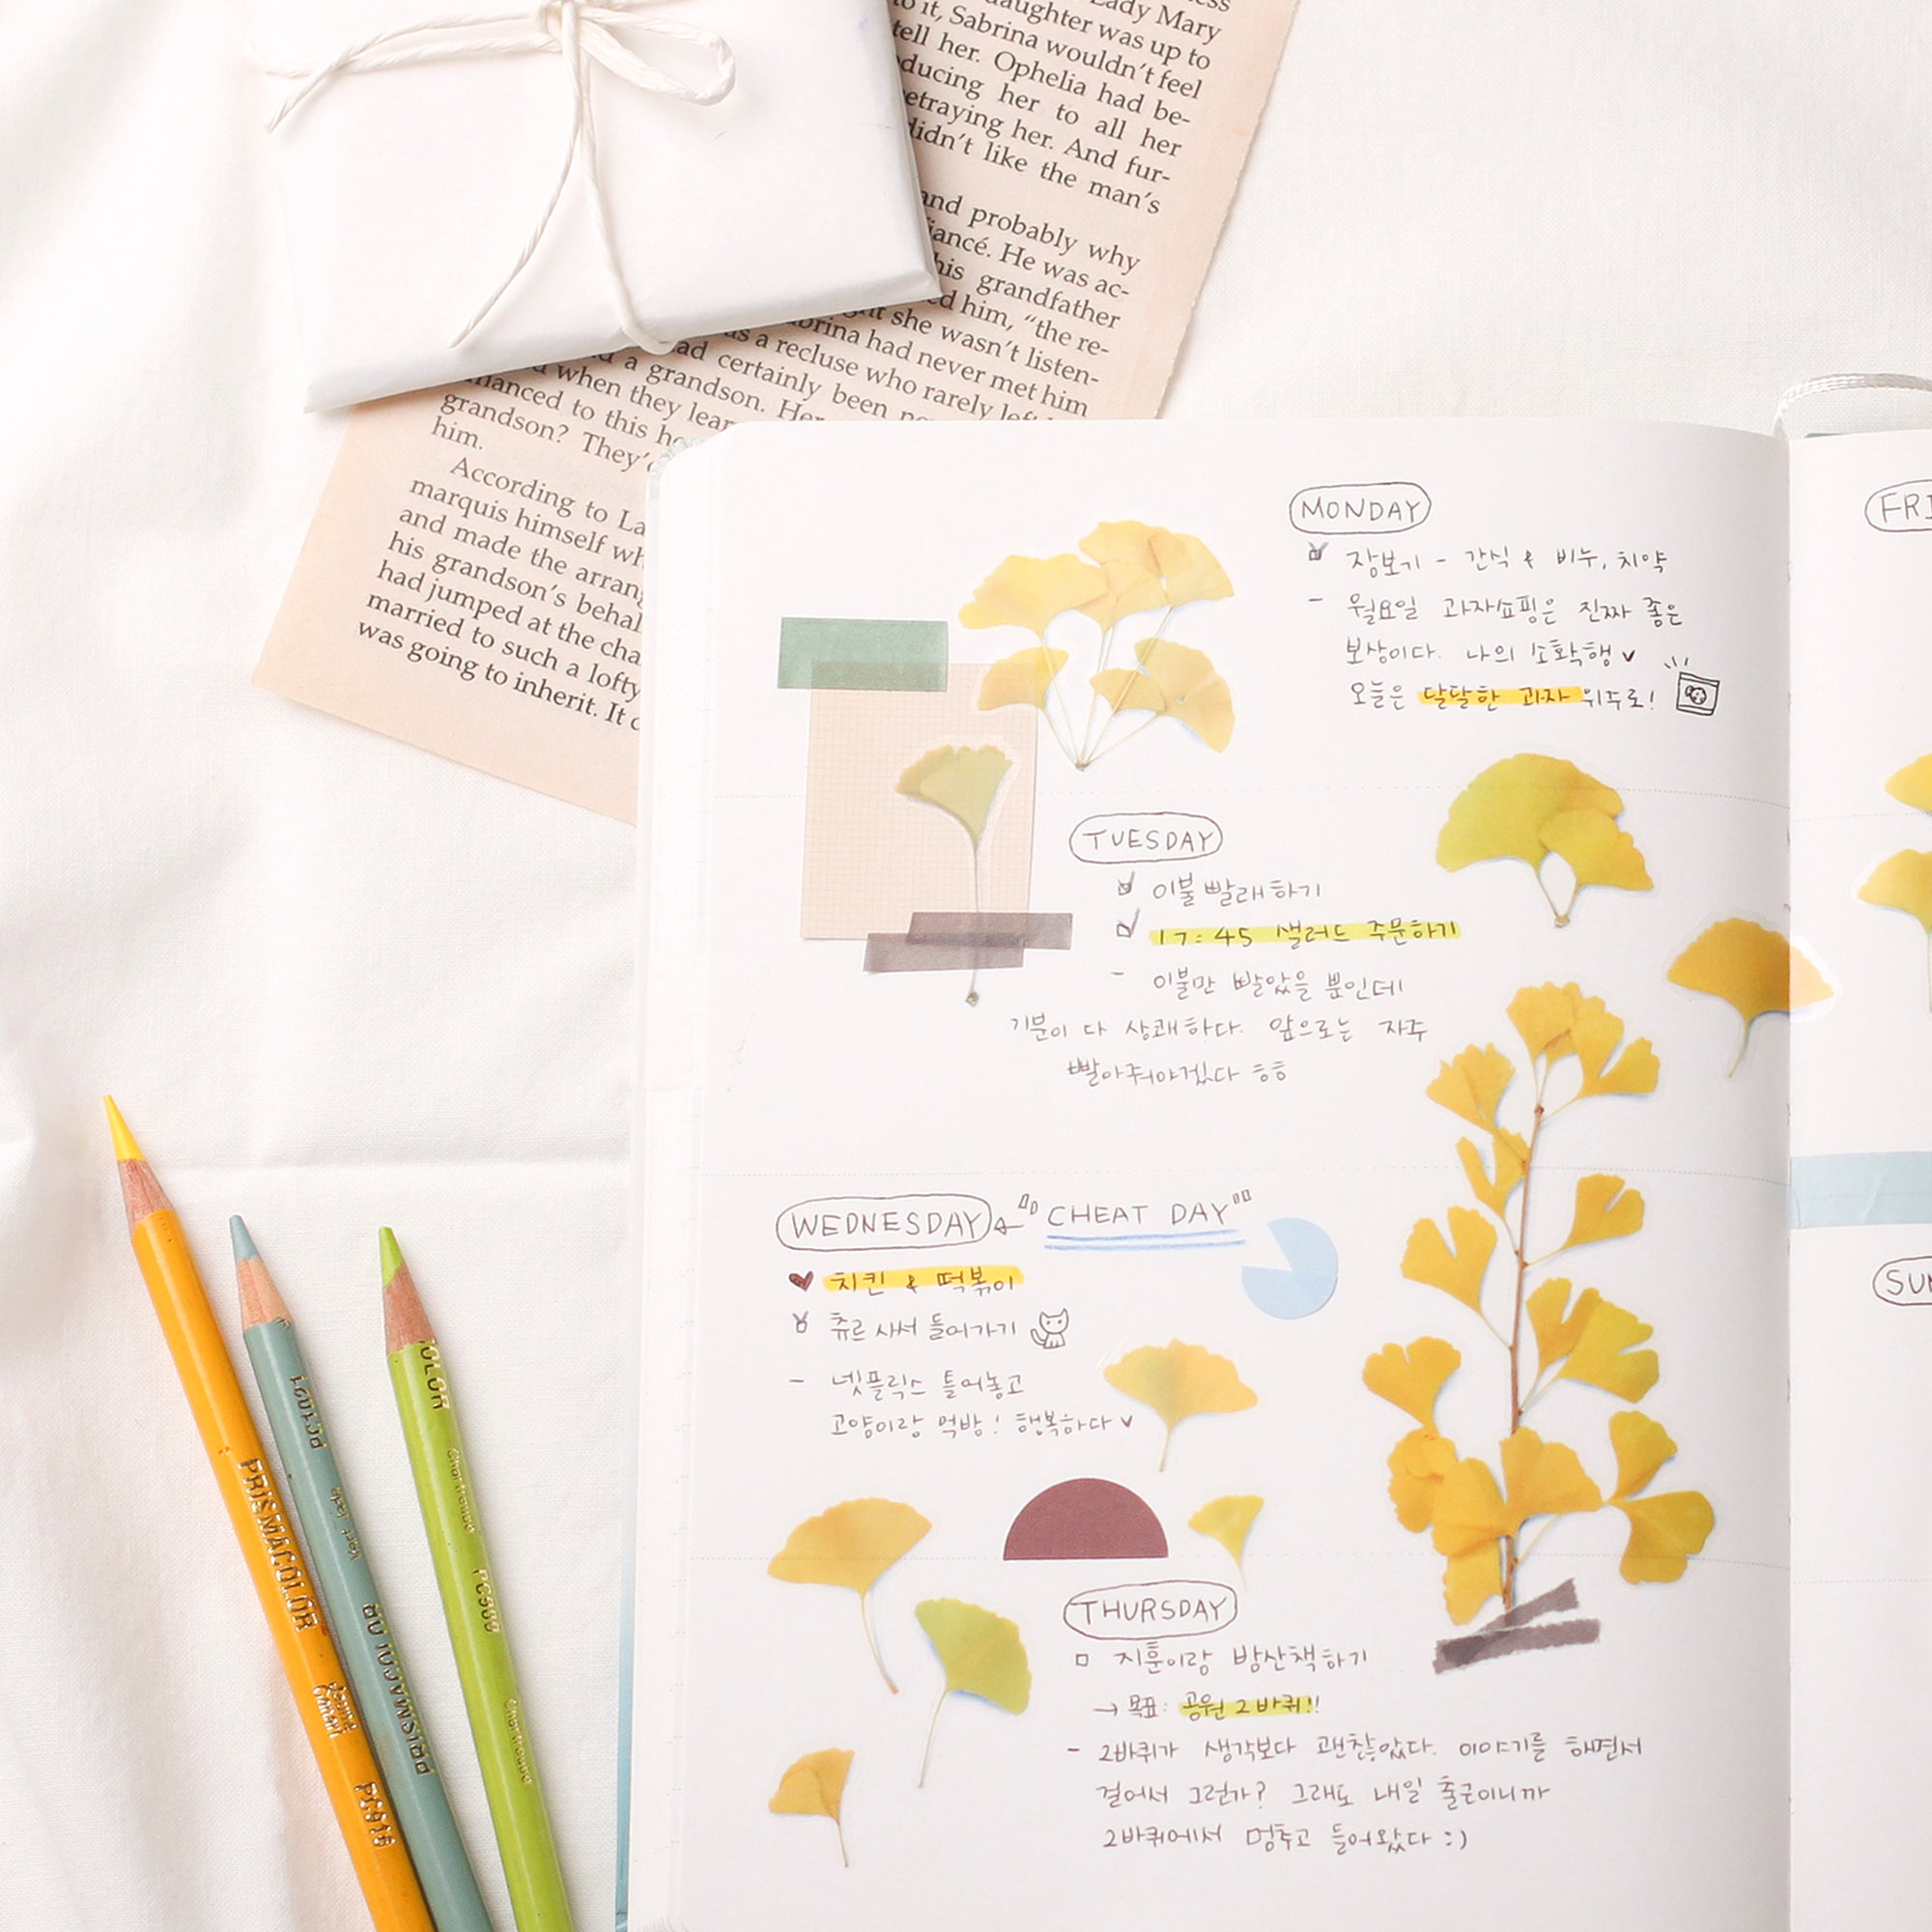 Lady Mary
daughter was up to
to it, Sabrina wouldn't feel
tell her. Ophelia had be-
ducing her to all her
etraying her. And fur-
didn't like the man's
and probably why
fiancé. He was ac-
his grandfather
ed him, "the re-
she wasn't listen-
brina had never met him
as a recluse who rarely left
had certainly been
a grandson. Her
when they lear
nanced to this ho
grandson? They'd
him.
According to La
marquis himself wh
and made the arrang
his grandson's behal
had jumped at the cha
married to such a lofty
was going to inherit. It
MONDAY
장보기 - 간식 & 비누, 치약
- 월요일 과자쇼핑은 진짜 좋은
보상이다. 나의 소확행
오늘은 달달한 과자 위주로!
TUESDAY
이불 빨래하기
17:45 샐러드 주문하기
- 이불만 빨았을 뿐인데
기분이 다 상쾌하다. 앞으로는 자주
빨아줘야겠다 ㅎㅎ
WEDNESDAY ← "CHEAT DAY"
♥ 치킨 & 떡볶이
츄르 사서 들어가기
- 넷플릭스 틀어놓고
고양이랑 먹방! 행복하다
THURSDAY
□ 지훈이랑 밤산책하기
→ 목표: 공원 2바퀴!!
- 2바퀴가 생각보다 괜찮았다. 이야기를 하면서
걸어서 그런가? 그래도 내일 출근이니까
2바퀴에서 멈추고 들어왔다 :)
FRI
SUN
PRISMACOLOR PC916
PRISMACOLOR PC1021
OLOR Chartreuse PC989 Chartreuse